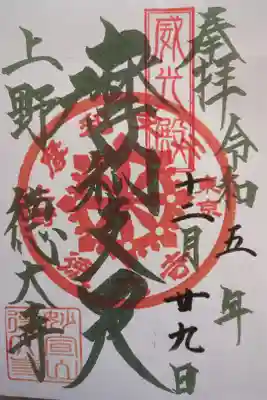 奉拝
令和五年
十二月廿九日
威光殿
摩利支天
上野
徳大寺
東京